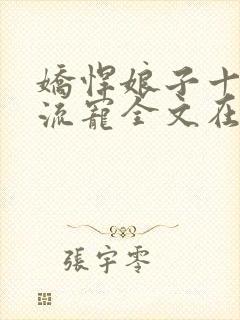 嬌悍娘子十
流寵全文在
張宇零